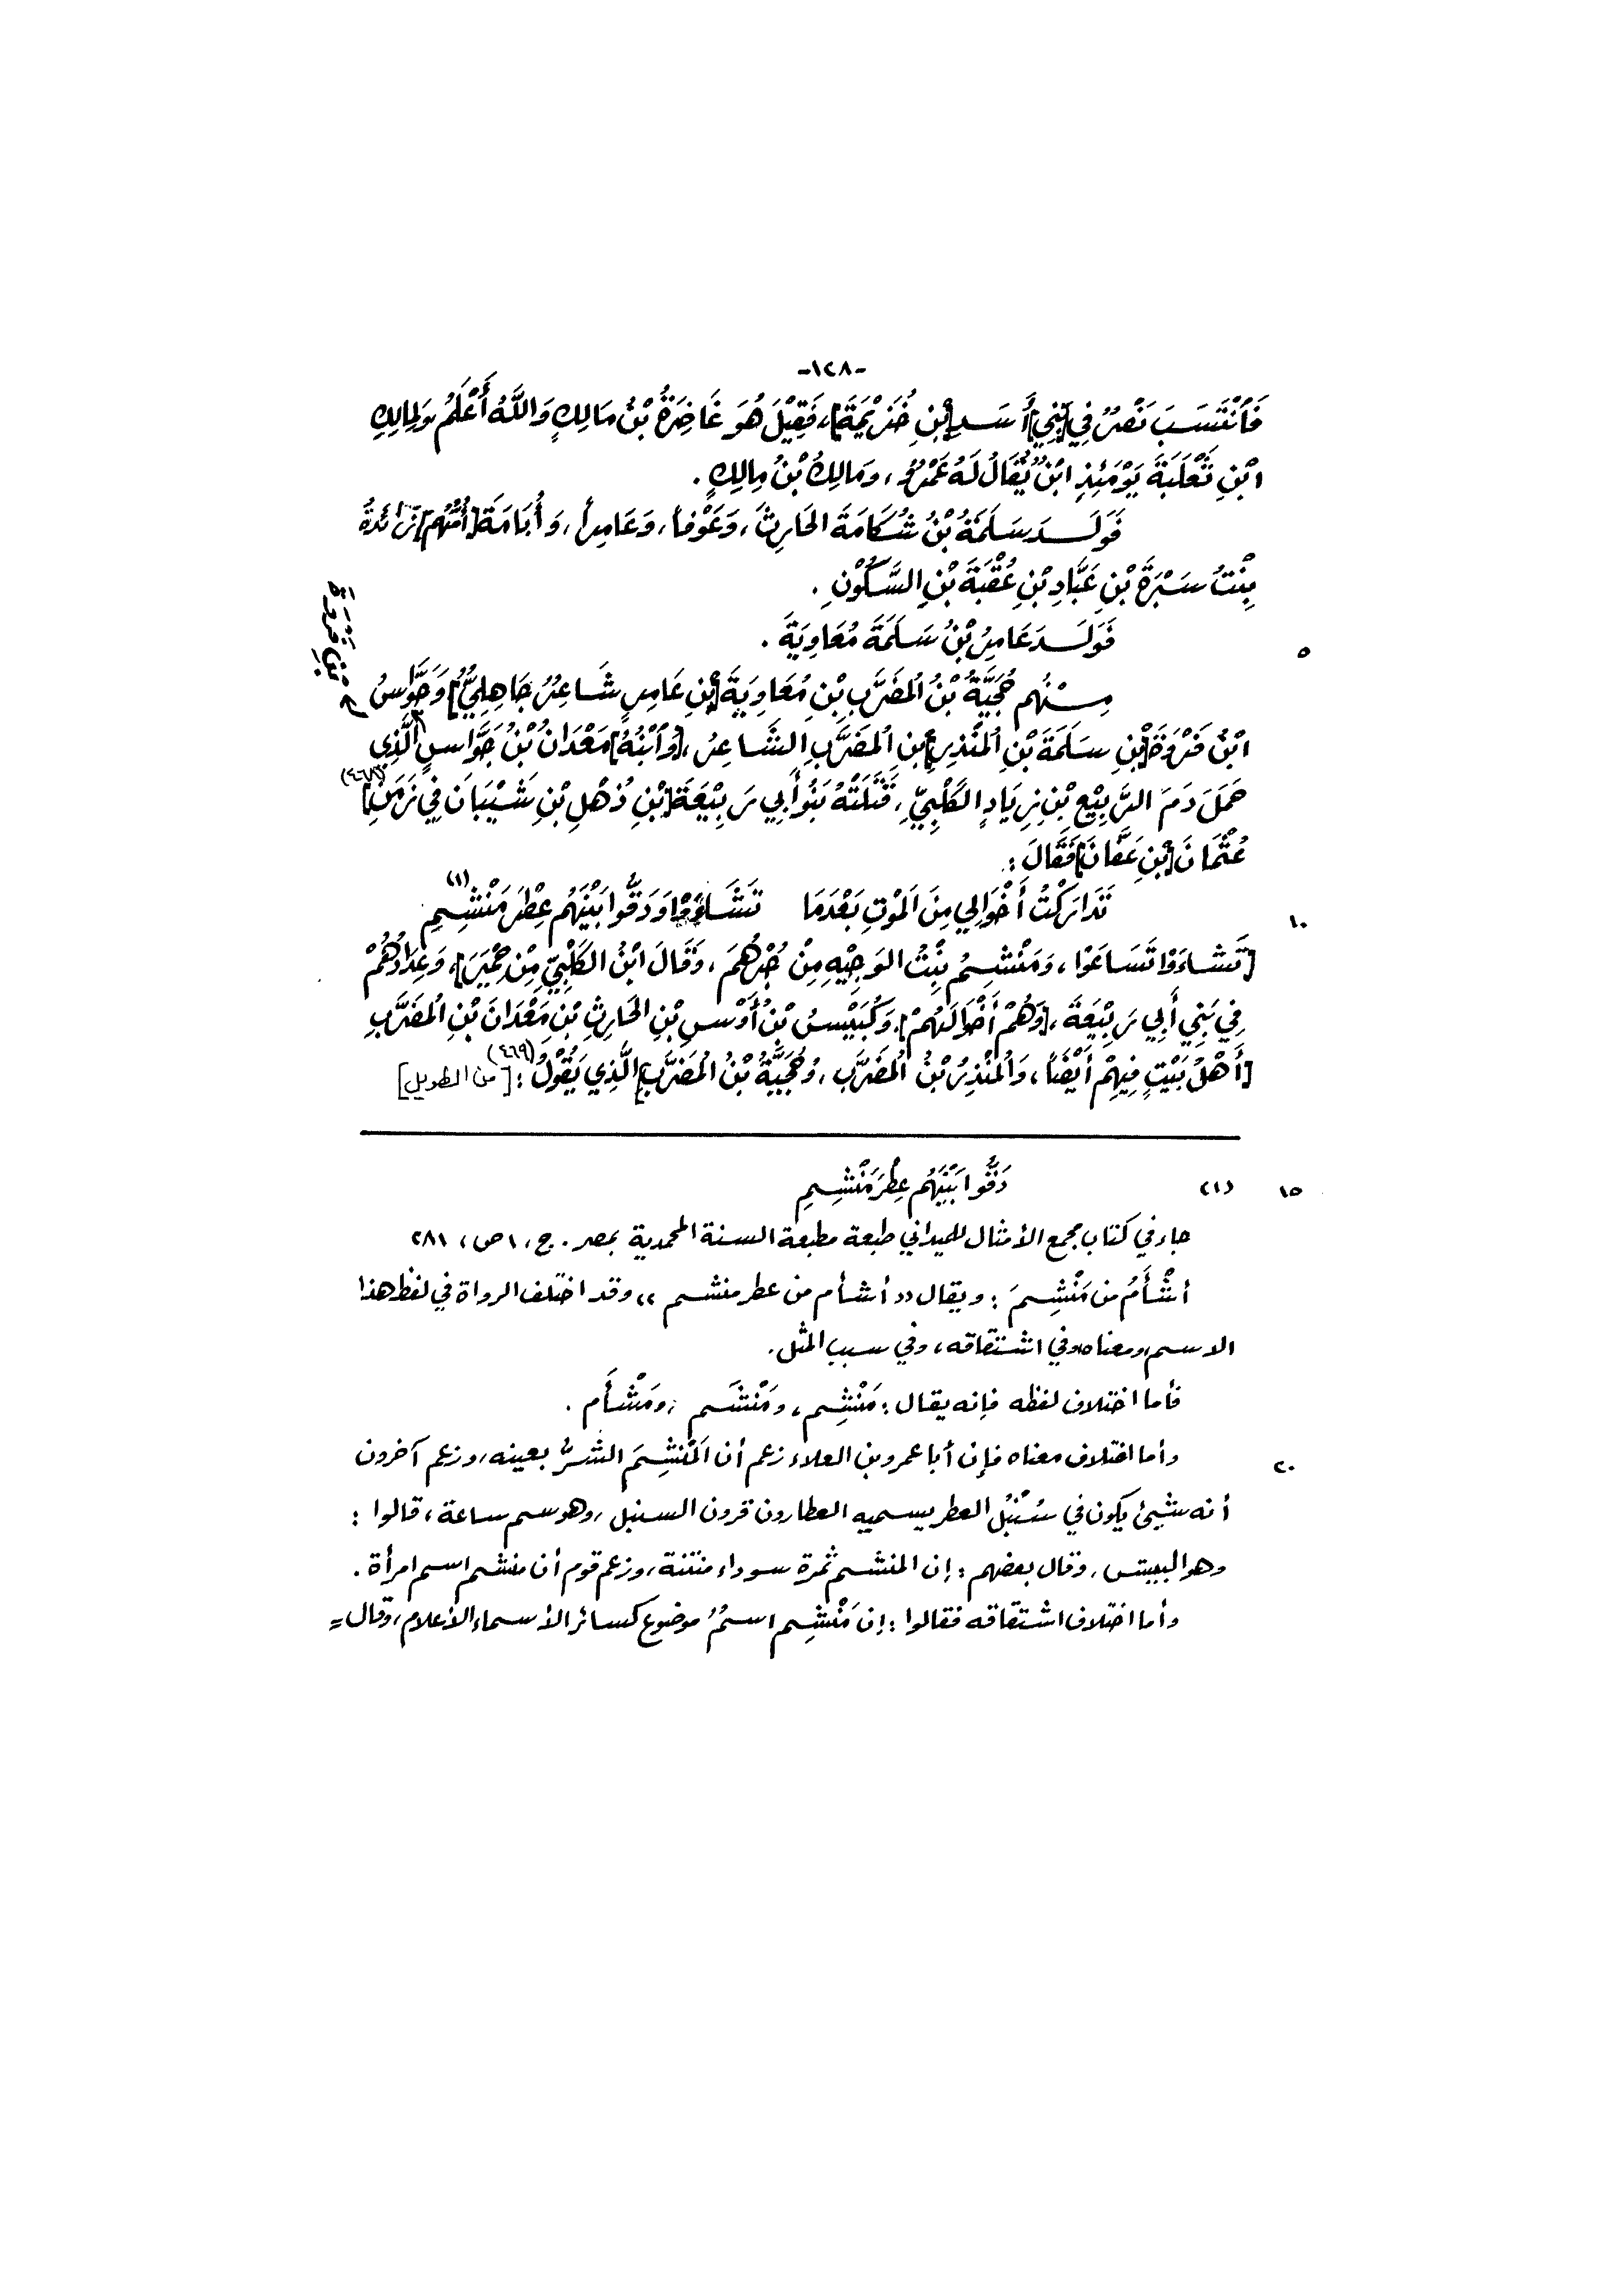 -١٢٨-
فَٱنْتَسَبَ نَصْرٌ فِي [بَنِي] أَسَدِ [بْنِ خُزَيْمَةَ]، فَقِيْلَ هُوَ غَاضِرَةُ بْنُ مَالِكٍ وَاللَّهُ أَعْلَمُ وَلِمَالِكِ
ابْنِ ثَعْلَبَةَ يَوْمَئِذٍ ابْنٌ يُقَالُ لَهُ عَمْرٌو، ومَالِكُ بْنُ مَالِكٍ.
فَوَلَدَ سَلَمَةُ بْنُ شُكَامَةَ الحَارِثَ، وَعَوْفاً، وَعَامِراً، وَأُبَامَةَ [أُمُّهُمْ] زَائِدَةُ
بِنْتُ سَبْرَةَ بْنِ عَبَّادِ بْنِ عُقْبَةَ بْنِ السَّكُوْنِ.
٥ فَوَلَدَ عَامِرُ بْنُ سَلَمَةَ مُعَاوِيَةَ.
مِنْهُم حُجَيَّةُ بْنُ المُضَرَّبِ بْنِ مُعَاوِيَةَ [بْنِ عَامِرٍ شَاعِرٌ جَاهِلِيٌّ] وَجَوَّاسُ
ابْنُ فَرْوَةَ [بْنِ سَلَمَةَ بْنِ المُنْذِرِ] بنِ المُضَرَّبِ الشَّاعِرُ، [وَٱبْنُهُ] مَعْدَانُ بْنُ جَوَّاسٍ الَّذِي
حَمَلَ دَمَ الرَّبِيْعِ بْنِ زِيَادٍ الكَلْبِيِّ، قَتَلَتْهُ بَنُو أَبِي رَبِيْعَةَ [بْنِ ذُهْلِ بْنِ شَيْبَانَ فِي زَمَنِ] (٤٦٨)
عُثْمَانَ [بْنِ عَفَّانَ] فَقَالَ:
١٠ تَدَارَكْتُ أَخْوَالِي مِنَ المَوْتِ بَعْدَمَا تَشَاءَوْا وَدَقُّوا بَيْنَهُم عِطْرَ مَنْشِمِ (١)
[تَشاءَوْا تَسَاعَوْا، وَمَنْشِمُ بِنْتُ الوَجِيْهِ مِنْ جُرْهُمَ، وَقَالَ ابْنُ الكَلْبِيِّ مِنْ حِمْيَرَ]، وَعِدَادُهُمْ
فِي بَنِي أَبِي رَبِيْعَةَ، [وَهُمْ أَخْوَالُهُمْ]. وَكُبَيْسُ بْنُ أَوْسِ بْنِ الحَارِثِ بْنِ مَعْدَانَ بْنِ المُضَرَّبِ
[أَهْلُ بَيْتٍ فِيهِمْ أَيْضاً، وَالمُنْذِرُ بْنُ المُضَرَّبِ، وحُجَيَّةُ بْنُ المُضَرَّبِ] الَّذِي يَقُوْلُ (٤٦٩): [من الطويل]
١٥ (١) دَقُّوا بَيْنَهُم عِطْرَ مَنْشِمِ
جاء في كتاب مجمع الأمثال للميداني طبعة مطبعة السنة المحمدية بمصر. ج، ١ ص، ٢٨١
أَشْأَمُ من مَنْشِمَ: ويقال « أشأم من عطر منشم » وقد اختلف الرواة في لفظ هذا
الاسم، ومعناه وفي اشتقاقه، وفي سبب المثل.
فأما اختلاف لفظه فإنه يقال: مَنْشِم، ومَنْشَم، ومَشْأَم.
٢٠ وأما اختلاف معناه فإن أبا عمرو بن العلاء زعم أن المَنْشِمَ الشرُّ بعينه، وزعم آخرون
أنه شيئ يكون في سُنْبُل العطر يسميه العطارون قرون السنبل، وهو سم ساعة، قالوا:
وهو البيش. وقال بعضهم: إن المنشم ثمرة سوداء منتنة، وزعم قوم أن منشم اسم امرأة.
وأما اختلاف اشتقاقه فقالوا: إن مَنْشِم اسمٌ موضوع كسائر الأسماء الأعلام، وقال =